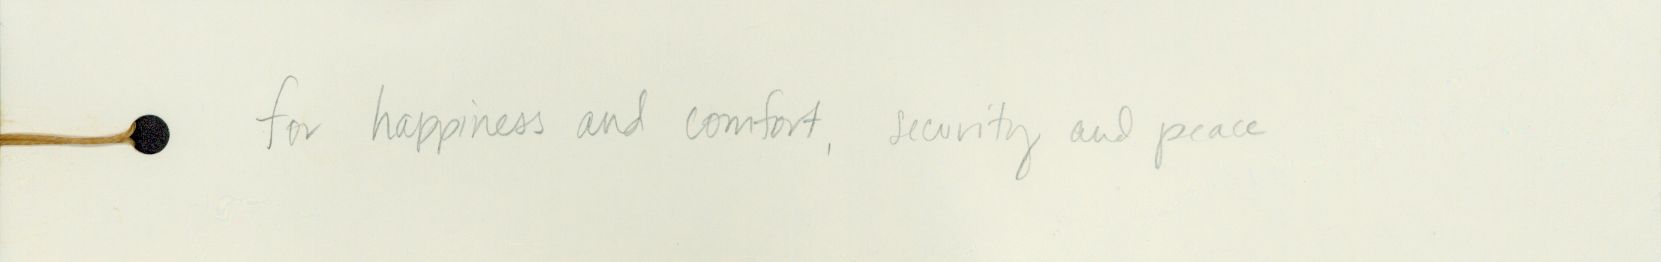 for happiness and comfort, security and peace